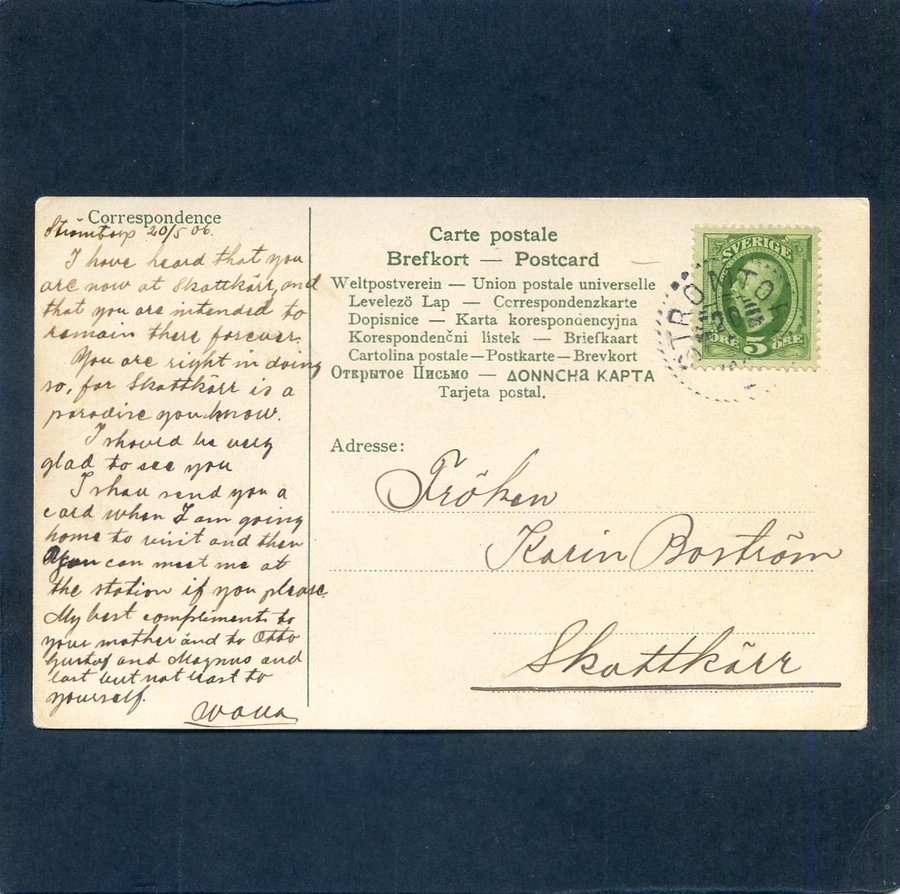 Correspondence
Strömtorp 20/5 06.
I have heard that you
are now at Skattkärr, and
that you are intended to
remain there forever.
You are right in doing
so, for Skattkärr is a
paradise you know.
I should be very
glad to see you
I shall send you a
card when I am going
home to visit and then
you can meet me at
the station if you please.
My best compliments to
your mother and to Otto
Gustaf and Magnus and
last but not least to
yourself.
Carte postale
Brefkort — Postcard
Weltpostverein — Union postale universelle
Levelező Lap — Correspondenzkarte
Dopisnice — Karta korespondencyjna
Korespondenční lístek — Briefkaart
Cartolina postale — Postkarte — Brevkort
Открытое Письмо — ΔΟΝΝCHa ΚΑΡΤΑ
Tarjeta postal.
SVERIGE
ÖRE 5 ÖRE
STRÖMTORP
Adresse:
Fröken
Karin Boström
Skattkärr